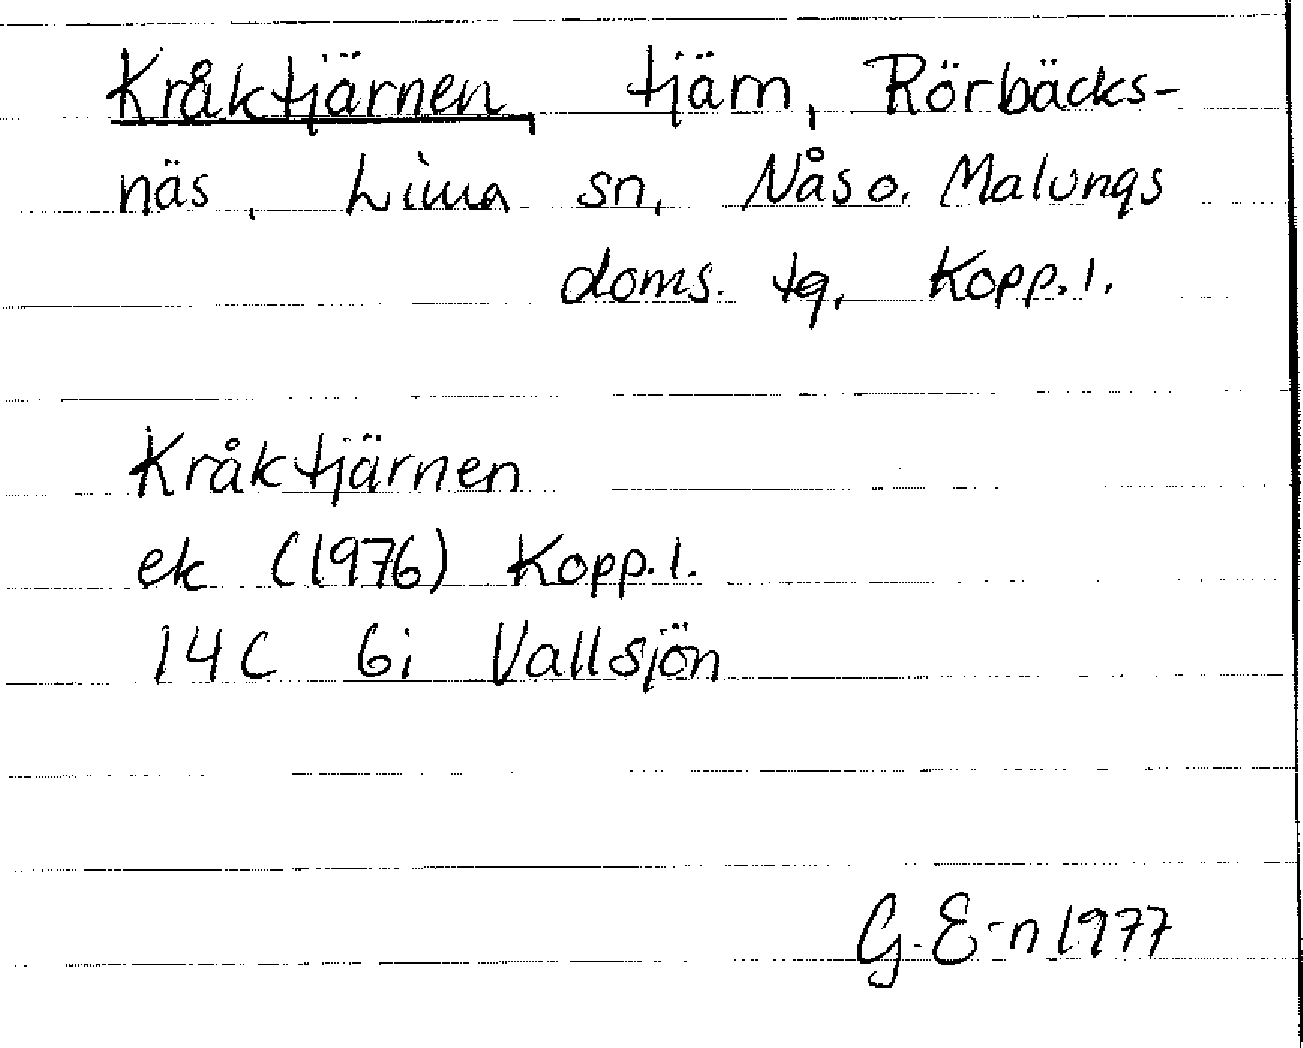 Kråktjärnen, tjärn, Rörbäcks-
näs, Lima sn, Nås o. Malungs
doms. tg, Kopp. l.
Kråktjärnen
ek (1976) Kopp. l.
14C 6i Vallsjön
G. E-n 1977